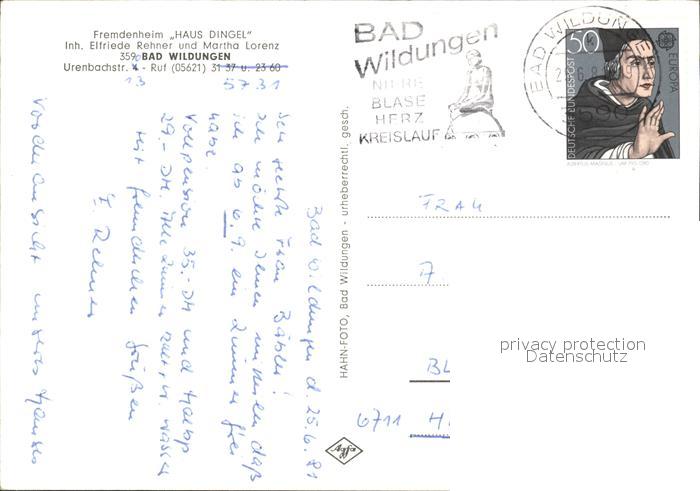 Fremdenheim „HAUS DINGEL"
Inh. Elfriede Rehner und Martha Lorenz
3590 BAD WILDUNGEN
Urenbachstr. 4 - Ruf (05621) 31 37 u. 23 60
13 5731
BAD
Wildungen
NIERE
BLASE
HERZ
KREISLAUF
BAD WILDUN
590
50
DEUTSCHE BUNDESPOST
EUROPA
ALBERTUS MAGNUS · UM 1193-1280
Bad Wildungen d. 25.6.81
Sehr geehrte Frau
Ich möchte Ihnen mitteilen daß
ich ab 6.9. ein Zimmer frei
habe.
Vollpension 35.-DM und Halbp
29.-DM. Alle Zimmer Wasser
Mit freundlichen Grüßen
E. Rehner
Vorderansicht unseres Hauses
HAHN-FOTO, Bad Wildungen - urheberrechtl. gesch.
Agfa
FRAU
A
BL
6711 H
privacy protection
Datenschutz